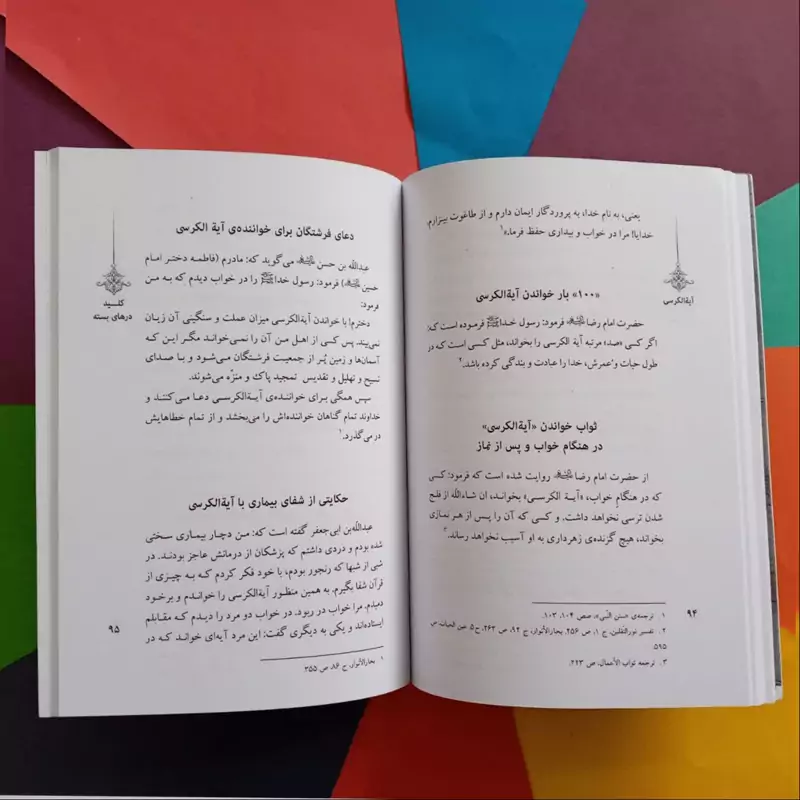 آیةالکرسی
یعنی، به نام خدا، به پروردگار ایمان دارم و از طاغوت بیزارم.
خدایا! مرا در خواب و بیداری حفظ فرما.»۱
«۱۰۰» بار خواندن آیةالکرسی
حضرت امام رضا علیه‌السلام فرمود: رسول خداﷺ فرموده است که
اگر کسی «صد» مرتبه آیة الکرسی را بخواند، مثل کسی است که در
طول حیات و عمرش، خدا را عبادت و بندگی کرده باشد.۲
ثواب خواندن «آیةالکرسی»
در هنگام خواب و پس از نماز
از حضرت امام رضا علیه‌السلام روایت شده است که فرمود: کسی
که در هنگام خواب، «آیة الکرسی» بخواند، ان شاءالله از فلج
شدن ترسی نخواهد داشت. و کسی که آن را پس از هر نمازی
بخواند، هیچ گزنده‌ی زهرداری به او آسیب نخواهد رساند.۳
۱. ترجمه‌ی «سنن النّبی»، صص ۱۰۴، ۱۰۳.
۲. تفسیر نورالثقلین، ج ۱، ص ۲۵۶. بحارالأنوار، ج ۹۲، ص ۲۶۳. ح۵. عین الحیات، ص
۵۹۵
۳. ترجمه ثواب الأعمال، ص ۲۲۳.
۹۴
کلید
درهای بسته
دعای فرشتگان برای خواننده‌ی آیة الکرسی
عبدالله بن حسن علیه‌السلام می‌گوید که: مادرم (فاطمه دختر امام
حسین علیه‌السلام) فرمود: رسول خداﷺ را در خواب دیدم که به من
فرمود:
دخترم! با خواندن آیةالکرسی میزان عملت و سنگینی آن زیان
نمی‌بیند. پس کسی از اهل من آن را نمی‌خواند مگر این که
آسمان‌ها و زمین پُر از جمعیت فرشتگان می‌شود و با صدای
تسبیح و تهلیل و تقدیس تمجید پاک و منزّه می‌شوند.
سپس همگی برای خواننده‌ی آیةالکرسی دعا می‌کنند و
خداوند تمام گناهان خواننده‌اش را می‌بخشد و از تمام خطاهایش
در می‌گذرد.۱
حکایتی از شفای بیماری با آیةالکرسی
عبدالله‌بن ابی‌جعفر گفته است که: من دچار بیماری سختی
شده بودم و دردی داشتم که پزشکان از درمانش عاجز بودند. در
شبی از شبها که رنجور بودم، با خود فکر کردم که به چیزی از
قرآن شفا بگیرم. به همین منظور آیةالکرسی را خواندم و برخود
دمیدم. مرا خواب در ربود. در خواب دو مرد را دیدم که مقابلم
ایستاده‌اند و یکی به دیگری گفت: این مرد آیه‌ای خواند که در
۱. بحارالأنوار، ج ۸۶، ص ۳۵۵
۹۵